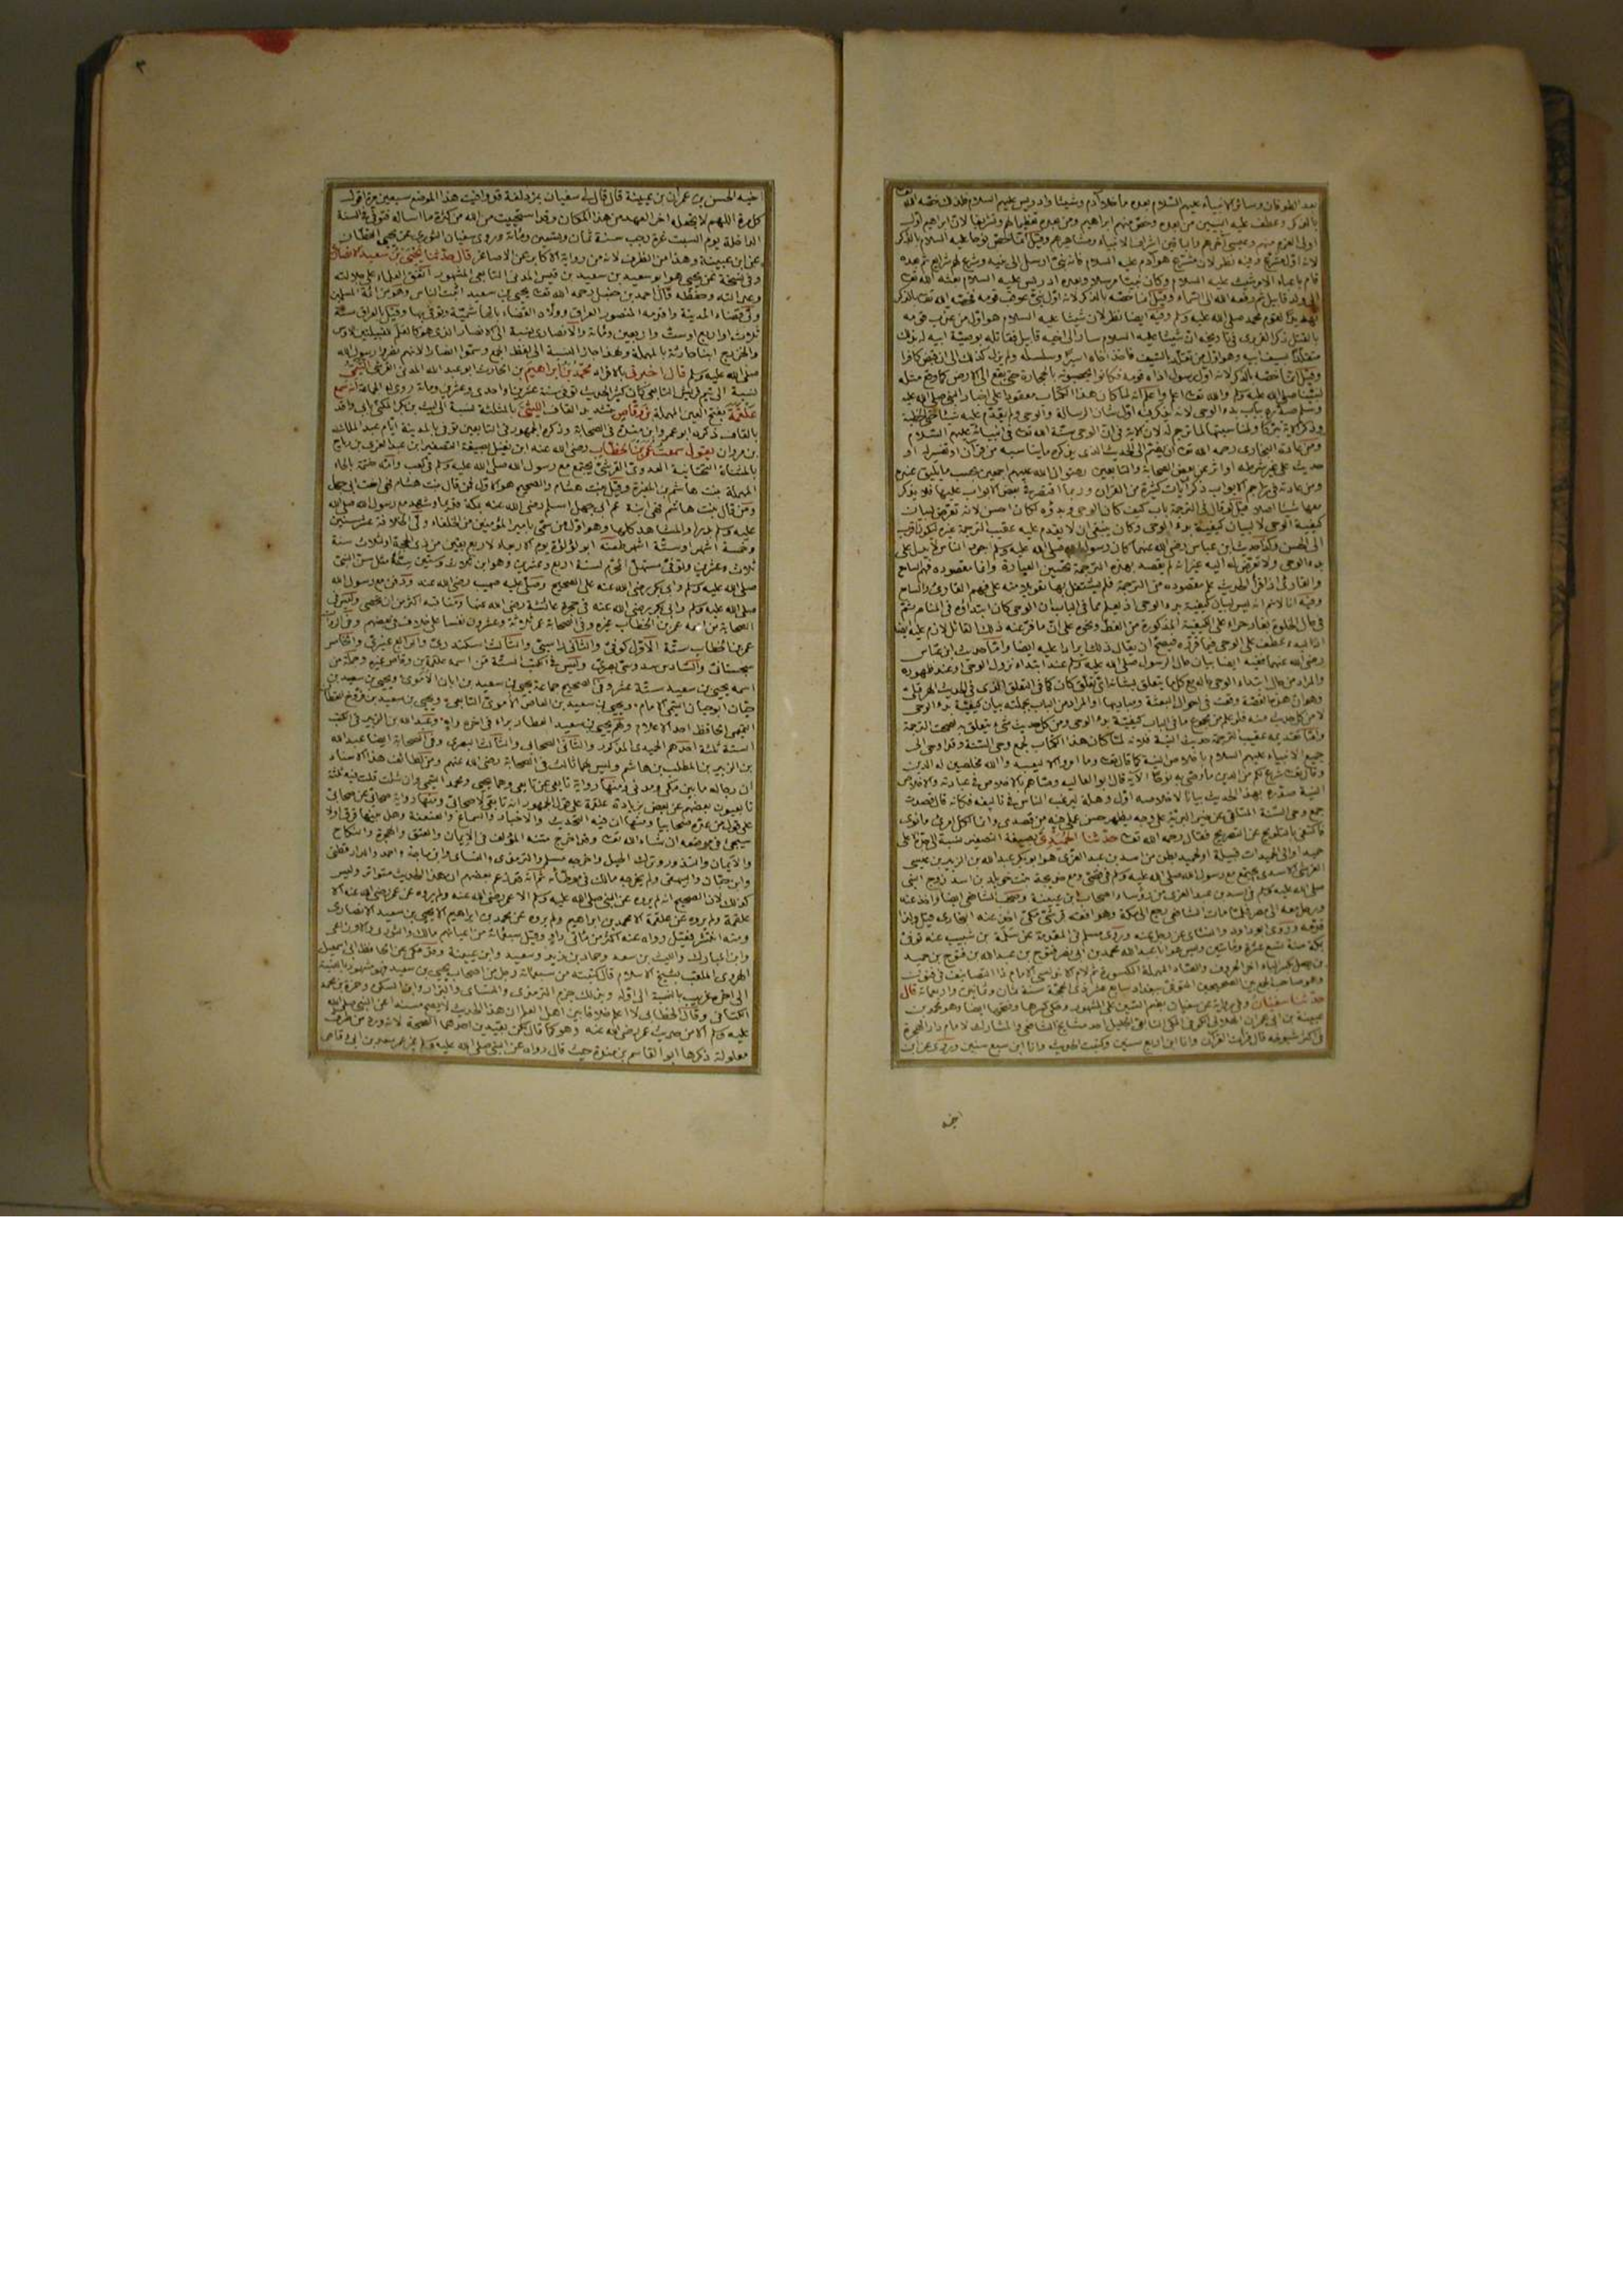 بعد الطوفان وسائر الانبياء عليهم السلام بعده ما خلا آدم وشيثا وادريس عليهم السلام فلذلك خصه الله
بالذكر وعطف عليه النبيين من بعده وخص منهم ابراهيم ومن بعده تعظيما لهم وتشريفا لان ابراهيم اول
اولى العزم منهم وعيسى آخرهم والباقين اشراف الانبياء ومشاهيرهم وقيل انما خص نوحا عليه السلام بالذكر
لانه اول مشرع وفيه نظر لان مشرع هو آدم عليه السلام فانه نبي ارسل الى بنيه وشرع لهم شرايع ثم بعده
قام باعباء الامر شيث عليه السلام وكان نبيا مرسلا وبعده ادريس عليه السلام بعثه الله تعالى
الى ولد قابيل ثم رفعه الله الى السماء وقيل انما خصه بالذكر لانه اول نبي عوقب قومه فخصه الله تعالى بالذكر
تهديدا لقوم محمد صلى الله عليه وسلم وفيه ايضا نظر لان شيثا عليه السلام هو اول من عذب قومه
بالقتل ذكر الفربرى فى تاريخه ان شيثا عليه السلام سار الى اخيه قابيل فقاتله بوصية ابيه له بذلك
متقلدا بسيف ابيه وهو اول من تقلد بالسيف فاخذ اخاه اسيرا وسلسله ولم يزل كذلك الى ان قبض كافرا
وقيل انما خصه بالذكر لانه اول رسول اذاه قومه فكانوا يحصبونه بالحجارة حتى يقع الى الارض كما وقع مثله
لنبينا صلى الله عليه وسلم والله تعالى اعلم واعلم انه لما كان هذا الكتاب معقودا على اخبار النبي صلى الله عليه
وسلم صدره بباب بدء الوحى لانه يذكر فيه اول شان الرسالة والوحى ولم يقدم عليه شيئا
وذكر الآية تبركا ولمناسبتها لما ترجم له لان الآية فى ان الوحى سنة الله تعالى فى انبيائه عليهم السلام
ومن عادة البخارى رحمه الله تعالى ان يضم الى الحديث الذى يذكره ما يناسبه من قرآن او تفسير له او
حديث على غير شرطه او اثر عن بعض الصحابة والتابعين رضوان الله عليهم اجمعين بحسب ما يليق عنده
ومن عادته فى تراجم الابواب ذكر آيات كثيرة من القرآن وربما اقتصر فى بعض الابواب عليها فلا يذكر
معها شيئا اصلا قيل لو قال فى الترجمة باب كيف كان الوحى وبدؤه لكان احسن لانه تعرض لبيان
كيفية الوحى لا لبيان كيفية بدء الوحى وكان ينبغى ان لا يقدم عليه عقيب الترجمة غيره ليكون اقرب
الى الحسن وكذا حديث ابن عباس رضى الله عنهما كان رسول الله صلى الله عليه وسلم اجود الناس لا يدل على
بدء الوحى ولا تعرض له اليه غير انه لم يقصد بهذه الترجمة تحسين العبارة وانما مقصوده فهم السامع
والقارئ اذا قرأ الحديث علم مقصوده من الترجمة فلم يشتغل بها تعويلا منه على فهم القارئ والسامع
وفيه انا لا نم انه ليس لبيان كيفية بدء الوحى اذ يعلم مما فى الباب ان الوحى كان ابتداؤه فى المنام ثم
فى حال الخلوة بغار حراء على الكيفية المذكورة من الغط ونحوه على ان ما فر عنه ذلك القائل لازم عليه ايضا
اذ البدء عطف على الوحى فيما قرره فيصح ان يقال ذلك ايرادا عليه ايضا واما حديث ابن عباس
رضى الله عنهما ففيه ايضا بيان حال الرسول صلى الله عليه وسلم عند ابتداء نزول الوحى او عند ظهوره
والمراد من حال ابتداء الوحى حاله مع كل ما يتعلق بشانه اى تعلق كان كما فى التعلق الذى فى الحديث الهرقلى
وهو ان هذه القصة وقعت فى احوال البعثة ومباديها او المراد من الباب بجملته بيان كيفية بدء الوحى
لا من كل حديث منه فلو علم من مجموع ما فى الباب كيفية بدء الوحى ومن كل حديث شىء يتعلق به صحت الترجمة
واما تقديمه عقيب الترجمة حديث النية فلانه لما كان هذا الكتاب لجمع وحى السنة وقد اوحى الى
جميع الانبياء عليهم السلام بالاخلاص النية كما قال تعالى وما امروا الا ليعبدوا الله مخلصين له الدين
وقال تعالى شرع لكم من الدين ما وصى به نوحا الآية قال ابو العالية وصاهم بالاخلاص فى عبادته والاخلاص
النية صدره بهذا الحديث بيانا لاخلاصه اول وهلة ليرغب الناس فى تاليفه فكانه قال قصدت
جمع وحى السنة المتلقى عن خير البرية على وجه يظهر حسن عملى فيه من قصدى وانما لكل امرئ ما نوى
فاكتفى بالتلويح عن التصريح فقال رحمه الله تعالى حدثنا الحميدى بصيغة التصغير نسبة الى جده اعلى
حميد او الى الحميدات قبيلة او لحميد ابطن من اسد بن عبد العزى هو ابو بكر عبد الله بن الزبير بن عيسى
القرشى الاسدى يجتمع مع رسول الله صلى الله عليه وسلم فى قصى ومع خديجة بنت خويلد بن اسد زوج النبى
صلى الله عليه وسلم فى اسد بن عبد العزى من رؤساء اصحاب ابن عيينة وصحب الشافعى ايضا واخذ عنه
ورحل معه الى مصر فلما مات الشافعى رجع الى مكة وهو افقه قرشى مكى اخذ عنه البخارى
وروى ابو داود والنسائى عن رجل عنه وروى مسلم فى المقدمة عن سلمة بن شبيب عنه توفى
بمكة سنة تسع عشرة ومائتين وليس هو ابا عبد الله محمد بن ابى نصر فتوح بن عبد الله بن فتوح بن حميد
بن يصل بكسر الياء اخر الحروف والصاد المهملة المكسورة ثم لام الاندلسى الامام ذا التصانيف فى فنون
وهو صاحب الجمع بين الصحيحين المتوفى ببغداد سابع عشر ذى الحجة سنة ثمان وثمانين واربعمائة قال
حدثنا سفيان وفى رواية عن سفيان بضم السين على المشهور وحكى كسرها وفتحها ايضا وهو محمد بن
عيينة بن ابى عمران الهلالى الكوفى المكى التابعى الجليل احد مشايخ الشافعى والمشارك للامام دار الهجرة
فى اكثر شيوخه قال قرأت القرآن وانا ابن اربع سنين وكتبت الحديث وانا ابن سبع سنين وروى عن ابن
اخيه
٣
اخيه الحسن بن عمران بن عيينة قال قال لى سفيان بمزدلفة قد وافيت هذا الموضع سبعين مرة اقول
كل مرة اللهم لا تجعله اخر العهد من هذا المكان وقد استحييت من الله من كثرة ما اساله فتوفى فى السنة
الداخلة يوم السبت غرة رجب سنة ثمان وتسعين ومائة وروى سفيان الثورى عن يحيى القطان
عن ابن عيينة وهذا من الظرف لانه من رواية الاكابر عن الاصاغر قال حدثنا يحيى بن سعيد الانصارى
وفى نسخة عن يحيى هو ابو سعيد بن سعيد بن قيس المدنى التابعى المشهور اتفق العلماء على جلالته
وعدالته وحفظه قال احمد بن حنبل رحمه الله تعالى يحيى بن سعيد اثبت الناس وهو من ائمة المسلمين
ولى قضاء المدينة واقدمه المنصور العراق وولاه القضاء بالهاشمية وتوفى بها وقيل بالعراق سنة
ثلاث او اربع او ست واربعين ومائة والانصارى نسبة الى الانصار الذى هو كالعلم للقبيلتين الاوس
والخزرج ابنا حارثة بالمهملة ولهذا جاز النسبة الى لفظ الجمع وسموا انصارا لانهم نصروا رسول الله
صلى الله عليه وسلم قال اخبرنى بالافراد محمد بن ابراهيم بن الحارث ابو عبد الله المدنى القرشى التيمى
نسبة الى تيم قريش التابعى كان كثير الحديث توفى سنة عشرين او احدى وعشرين ومائة روى له الجماعة انه سمع
علقمة بفتح العين المهملة بن وقاص بتشديد القاف الليثى بالمثلثة نسبة الى ليث بن بكر المكنى بابى واقد
بالقاف ذكره ابو عمرو ابن منده فى الصحابة وذكره الجمهور فى التابعين توفى بالمدينة ايام عبد الملك
بن مروان يقول سمعت عمر بن الخطاب رضى الله عنه ابن نفيل بصيغة التصغير ابن عبد العزى بن رياح
بالمثناة التحتانية العدوى القرشى يجتمع مع رسول الله صلى الله عليه وسلم فى كعب وامه حنتمة بالحاء
المهملة بنت هاشم بن المغيرة وقيل بنت هشام والصحيح هو الاول فمن قال بنت هشام فهى اخت ابى جهل
ومن قال بنت هاشم فهى ابنة عم ابى جهل اسلم رضى الله عنه بمكة قديما وشهد مع رسول الله صلى الله
عليه وسلم بدرا والمشاهد كلها وهو اول من سمى بامير المؤمنين من الخلفاء ولى الخلافة عشر سنين
وخمسة اشهر او ستة اشهر طعنه ابو لؤلؤة يوم الاربعاء لاربع بقين من ذى الحجة او ثلاث سنة
ثلاث وعشرين وتوفى مستهل المحرم لسنة اربع وعشرين وهو ابن ثلاث وستين سنة مثل سن النبى
صلى الله عليه وسلم وابى بكر رضى الله عنه على الصحيح وصلى عليه صهيب رضى الله عنه ودفن مع رسول الله
صلى الله عليه وسلم وابى بكر رضى الله عنه فى حجرة عائشة رضى الله عنها ومناقبه اكثر من ان تحصى وليس فى
الصحابة من اسمه عمر بن الخطاب غيره وفى الصحابة عمر ثلاثة وعشرون نفسا على خلاف فى بعضهم وفى الرواة
عمر بن الخطاب ستة الاول كوفى والثانى راسبى والثالث اسكندرى والرابع عنبرى والخامس
سجستانى والسادس سدوسى بصرى وليس فى الكتب الستة من اسمه علقمة بن وقاص غيره وجملة من
اسمه يحيى بن سعيد ستة عشر وفى الصحيح جماعة يحيى بن سعيد بن ابان الاموى ويحيى بن سعيد بن
حيان ابو حيان التيمى الامام ويحيى بن سعيد بن العاص الاموى التابعى ويحيى بن سعيد بن فروخ القطان
التيمى الحافظ احد الاعلام ولهم يحيى بن سعيد العطار براء فى اخره واه وعبد الله بن الزبير فى الكتب
الستة ثلثة احدهم الحميدى المذكور والثانى الصحابى والثالث البصرى وفى الصحابة ايضا عبد الله
بن الزبير بن المطلب بن هاشم وليس لهما ثالث فى الصحابة رضى الله عنهم ومن لطائف هذا الاسناد
ان رجاله ما بين مكى ومدنى ومنها رواية تابعى عن تابعى وهما يحيى ومحمد التيمى وان شئت قلت فيه ثلثة
تابعيون بعضهم عن بعض بزيادة علقمة على قول الجمهور انه تابعى لا صحابى ومنها رواية صحابى عن صحابى
على قول من عده صحابيا ومنها ان فيه التحديث والاخبار والسماع والعنعنة وهل بينها فرق اولا
سيجئ فى موضعه ان شاء الله تعالى وقد اخرج متنه المؤلف فى الايمان والعتق والهجرة والنكاح
والايمان والنذور وترك الحيل واخرجه مسلم والترمذى والنسائى وابن ماجة واحمد والدارقطنى
وابن حبان والبيهقى ولم يخرجه مالك فى موطأه ثم انه قد زعم بعضهم ان هذا الحديث متواتر وليس
كذلك لان الصحيح انه لم يروه عن النبى صلى الله عليه وسلم الا عمر رضى الله عنه ولم يروه عن عمر رضى الله عنه الا
علقمة ولم يروه عن علقمة الا محمد بن ابراهيم ولم يروه عن محمد بن ابراهيم الا يحيى بن سعيد الانصارى
ومنه انتشر فقيل رواه عنه اكثر من مائتى راو وقيل سبعمائة من اعيانهم مالك والثورى والاوزاعى
وابن المبارك والليث بن سعد وحماد بن زيد وسعيد وابن عيينة وقد حكى عن الحافظ ابى اسمعيل
الهروى الملقب بشيخ الاسلام قال كتبته من سبعمائة رجل من اصحاب يحيى بن سعيد فهو مشهور بالنسبة
الى اخره غريب بالنسبة الى اوله وبذلك جزم الترمذى والنسائى والبزار وابن السكن وحمزة بن محمد
الكنانى وقال الخطابى لا اعلم خلافا بين اهل العلم ان هذا الحديث لا يصح مسندا عن النبى صلى الله
عليه وسلم الا من حديث عمر رضى الله عنه وهو كما قال لكن بقيدين احدهما الصحة لانه ورد من طرق
معلولة ذكرها ابو القاسم بن منده حيث قال رواه عن النبى صلى الله عليه وسلم غير عمر سعد بن ابى وقاص